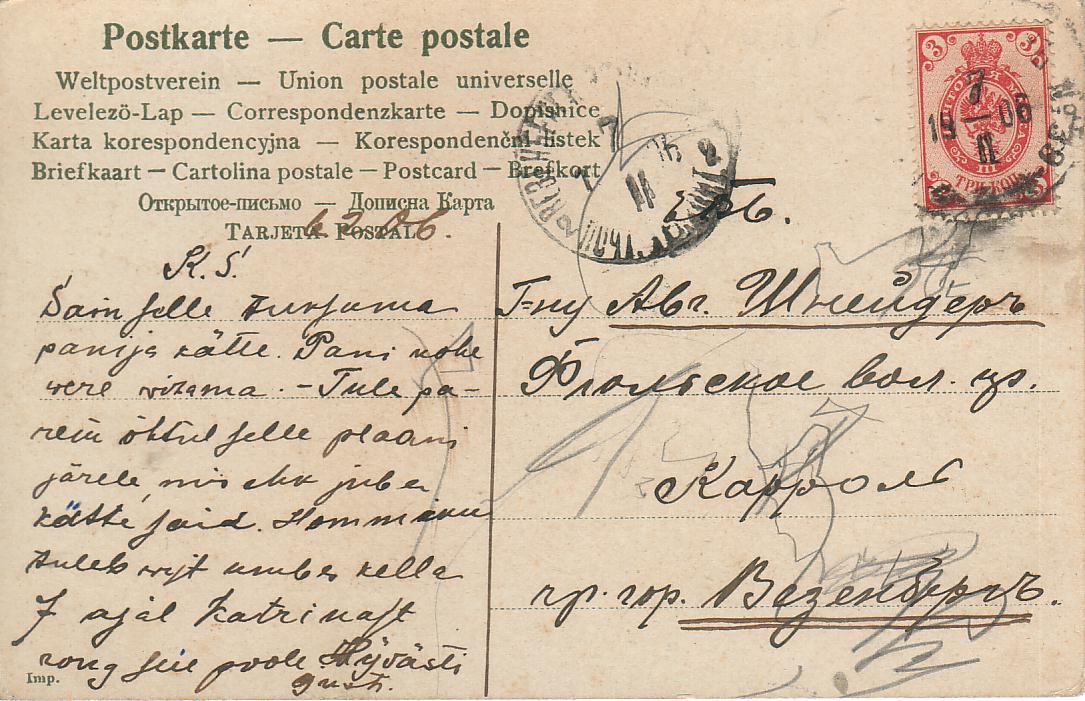 Postkarte — Carte postale
Weltpostverein — Union postale universelle
Levelező-Lap — Correspondenzkarte — Dopisnice
Karta korespondencyjna — Korespondenční lístek
Briefkaart — Cartolina postale — Postcard — Brefkort
Открытое-письмо — Дописна Карта
Tarjeta Postal
6.2.06.
K. S.
Sain selle kursuma
panija kätte. Pani nohe
were wirama. - Tule pa-
rem õhtul selle plaani
järele, mis ehk juba
kätte said. Hommiku
tuleb wist umbes kella
7 ajal Katrinast
rong siia poole Hyvästi
Gust.
3 3
ТРИ КОП.
7
19 — 06
II
Г-ну Авг. Шнейдеръ
вол. пр.
Карроль
пр. гор. Везенбергъ.
Imp.